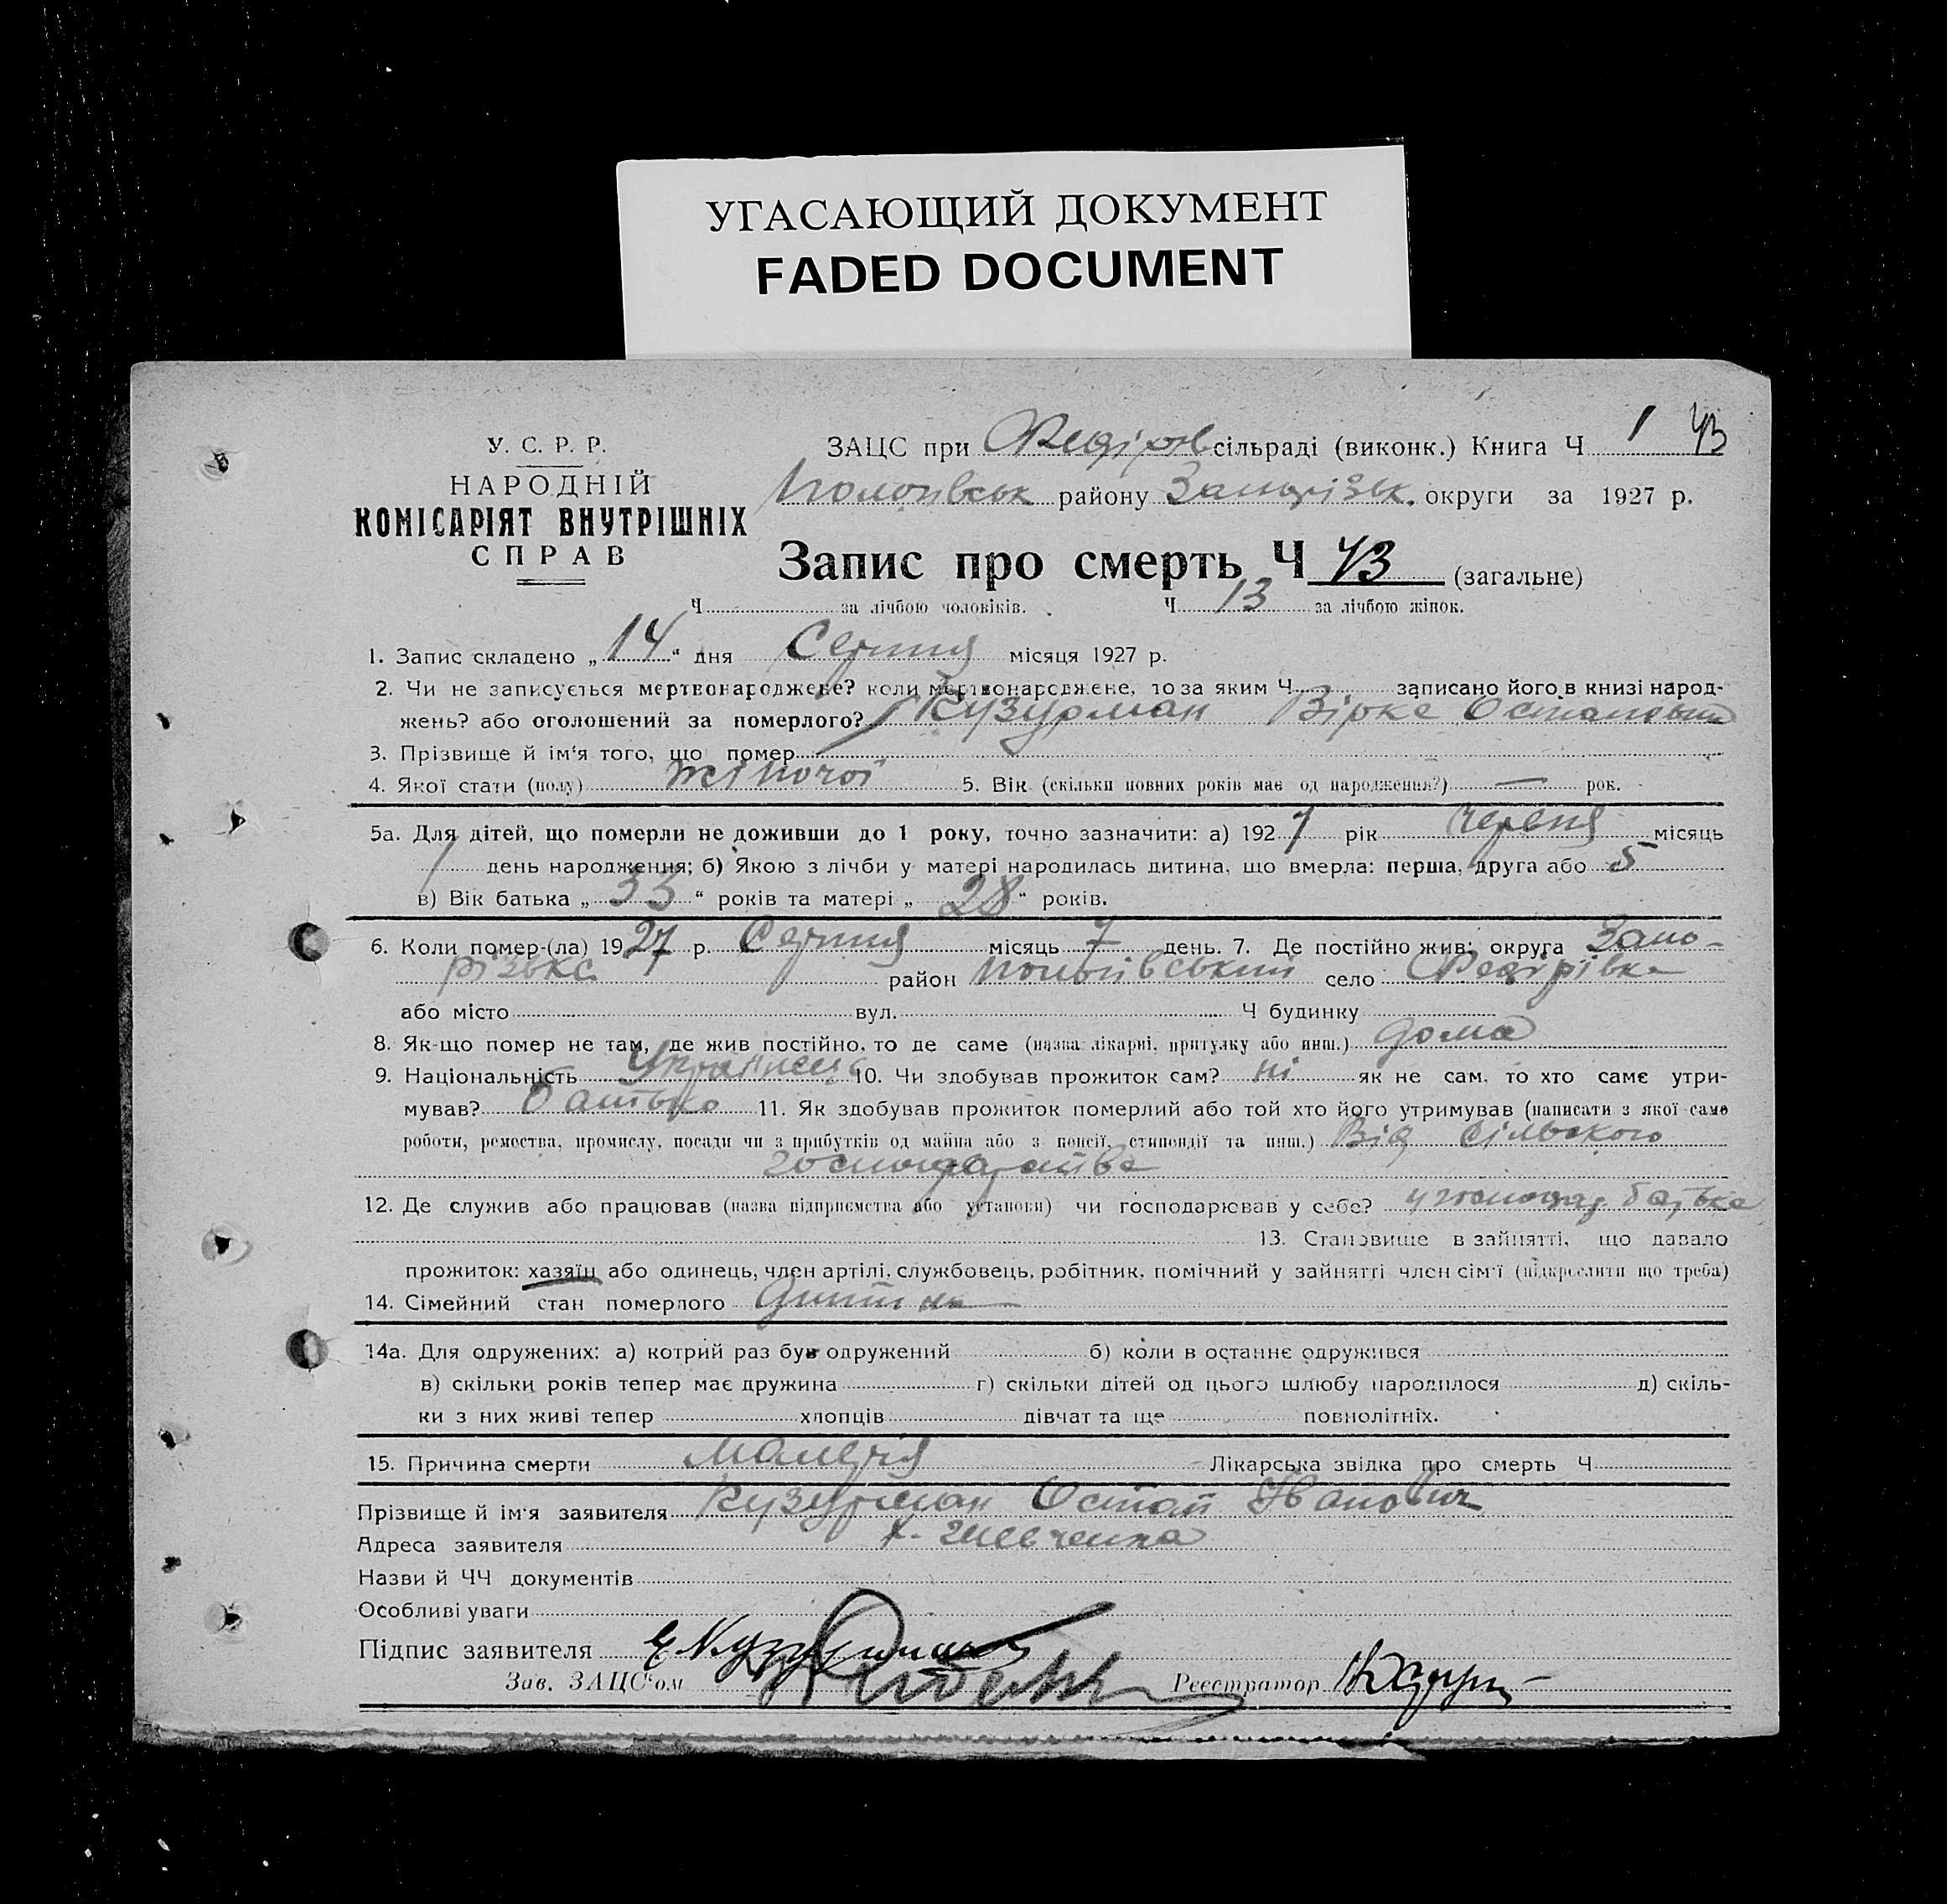 УГАСАЮЩИЙ ДОКУМЕНТ
FADED DOCUMENT
У. С. Р. Р.
НАРОДНІЙ
КОМІСАРІЯТ ВНУТРІШНІХ
СПРАВ
ЗАЦС при Федіров сільраді (виконк.) Книга Ч 1 43
Пологівськ району Запорізьк. округи за 1927 р.
Запис про смерть Ч 43 (загальне)
Ч за лічбою чоловіків. Ч 13 за лічбою жінок.
1. Запис складено „14“ дня Серпня місяця 1927 р.
2. Чи не записується мертвонароджене? коли мертвонароджене, то за яким Ч записано його в книзі народ-
жень? або оголошений за померлого? Кузурман Вірка Остаповна
3. Прізвище й ім'я того, що помер
4. Якої стати (полу) жіночої 5. Вік (скільки повних років має од народження?) — рок.
5а. Для дітей, що померли не доживши до 1 року, точно зазначити: а) 1927 рік Червня місяць
1 день народження; б) Якою з лічби у матері народилась дитина, що вмерла: перша, друга або 5
в) Вік батька „33“ років та матері „28“ років.
6. Коли помер-(ла) 1927 р. Серпня місяць 7 день. 7. Де постійно жив: округа Запо-
різька район Пологівський село Федірівка
або місто вул. Ч будинку
8. Як-що помер не там, де жив постійно, то де саме (назва лікарні, притулку або инш.) дома
9. Національність Українець 10. Чи здобував прожиток сам? ні як не сам, то хто саме утри-
мував? батько 11. Як здобував прожиток померлий або той хто його утримував (написати з якої саме
роботи, ремества, промислу, посади чи з прибутків од майна або з пенсії, стипендії та инш.) Від сільського
господарства
12. Де служив або працював (назва підприємства або установи) чи господарював у себе? у господар. батька
13. Становище в зайнятті, що давало
прожиток: хазяїн або одинець, член артілі, службовець, робітник, помічний у зайнятті член сім'ї (підкреслити що треба)
14. Сімейний стан померлого дитина
14а. Для одружених: а) котрий раз був одружений б) коли в останнє одружився
в) скільки років тепер має дружина г) скільки дітей од цього шлюбу народилося д) скіль-
ки з них живі тепер хлопців дівчат та ще повнолітніх.
15. Причина смерти малерія Лікарська звідка про смерть Ч
Прізвище й ім'я заявителя Кузурман Остап Іванович
Адреса заявителя х. Шевченка
Назви й ЧЧ документів
Особливі уваги
Підпис заявителя
Зав. ЗАЦС'ом Реєстратор